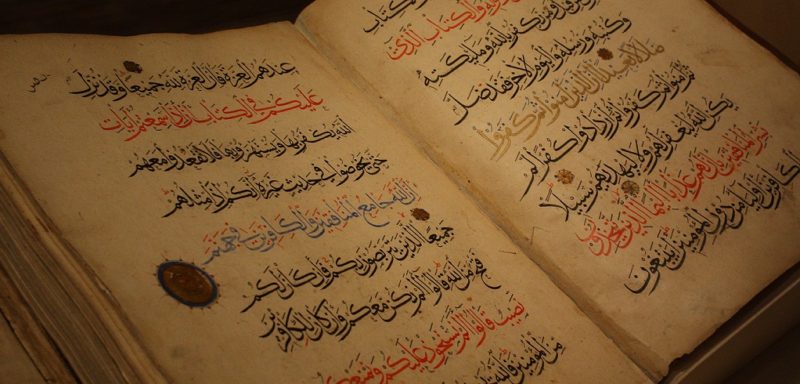 والكتاب الذي
من قبل ومن يكفر بالله وملئكته
وكتبه ورسله واليوم الاخر فقد ضل
ضلالا بعيدا ان الذين آمنوا ثم كفروا
ثم آمنوا ثم كفروا ثم ازدادوا كفرا لم
يكن الله ليغفر لهم ولا ليهديهم سبيلا
بشر المنافقين بان لهم عذابا اليما الذين يتخذون
الكافرين اولياء من دون المؤمنين ايبتغون
عندهم العزة فان العزة لله جميعا وقد نزل
عليكم في الكتاب ان اذا سمعتم آيات
الله يكفر بها ويستهزا بها فلا تقعدوا معهم
حتى يخوضوا في حديث غيره انكم اذا مثلهم
ان الله جامع المنافقين والكافرين في جهنم
جميعا الذين يتربصون بكم فان كان لكم
فتح من الله قالوا الم نكن معكم وان كان للكافرين
نصيب قالوا الم نستحوذ عليكم ونمنعكم
من المؤمنين فالله